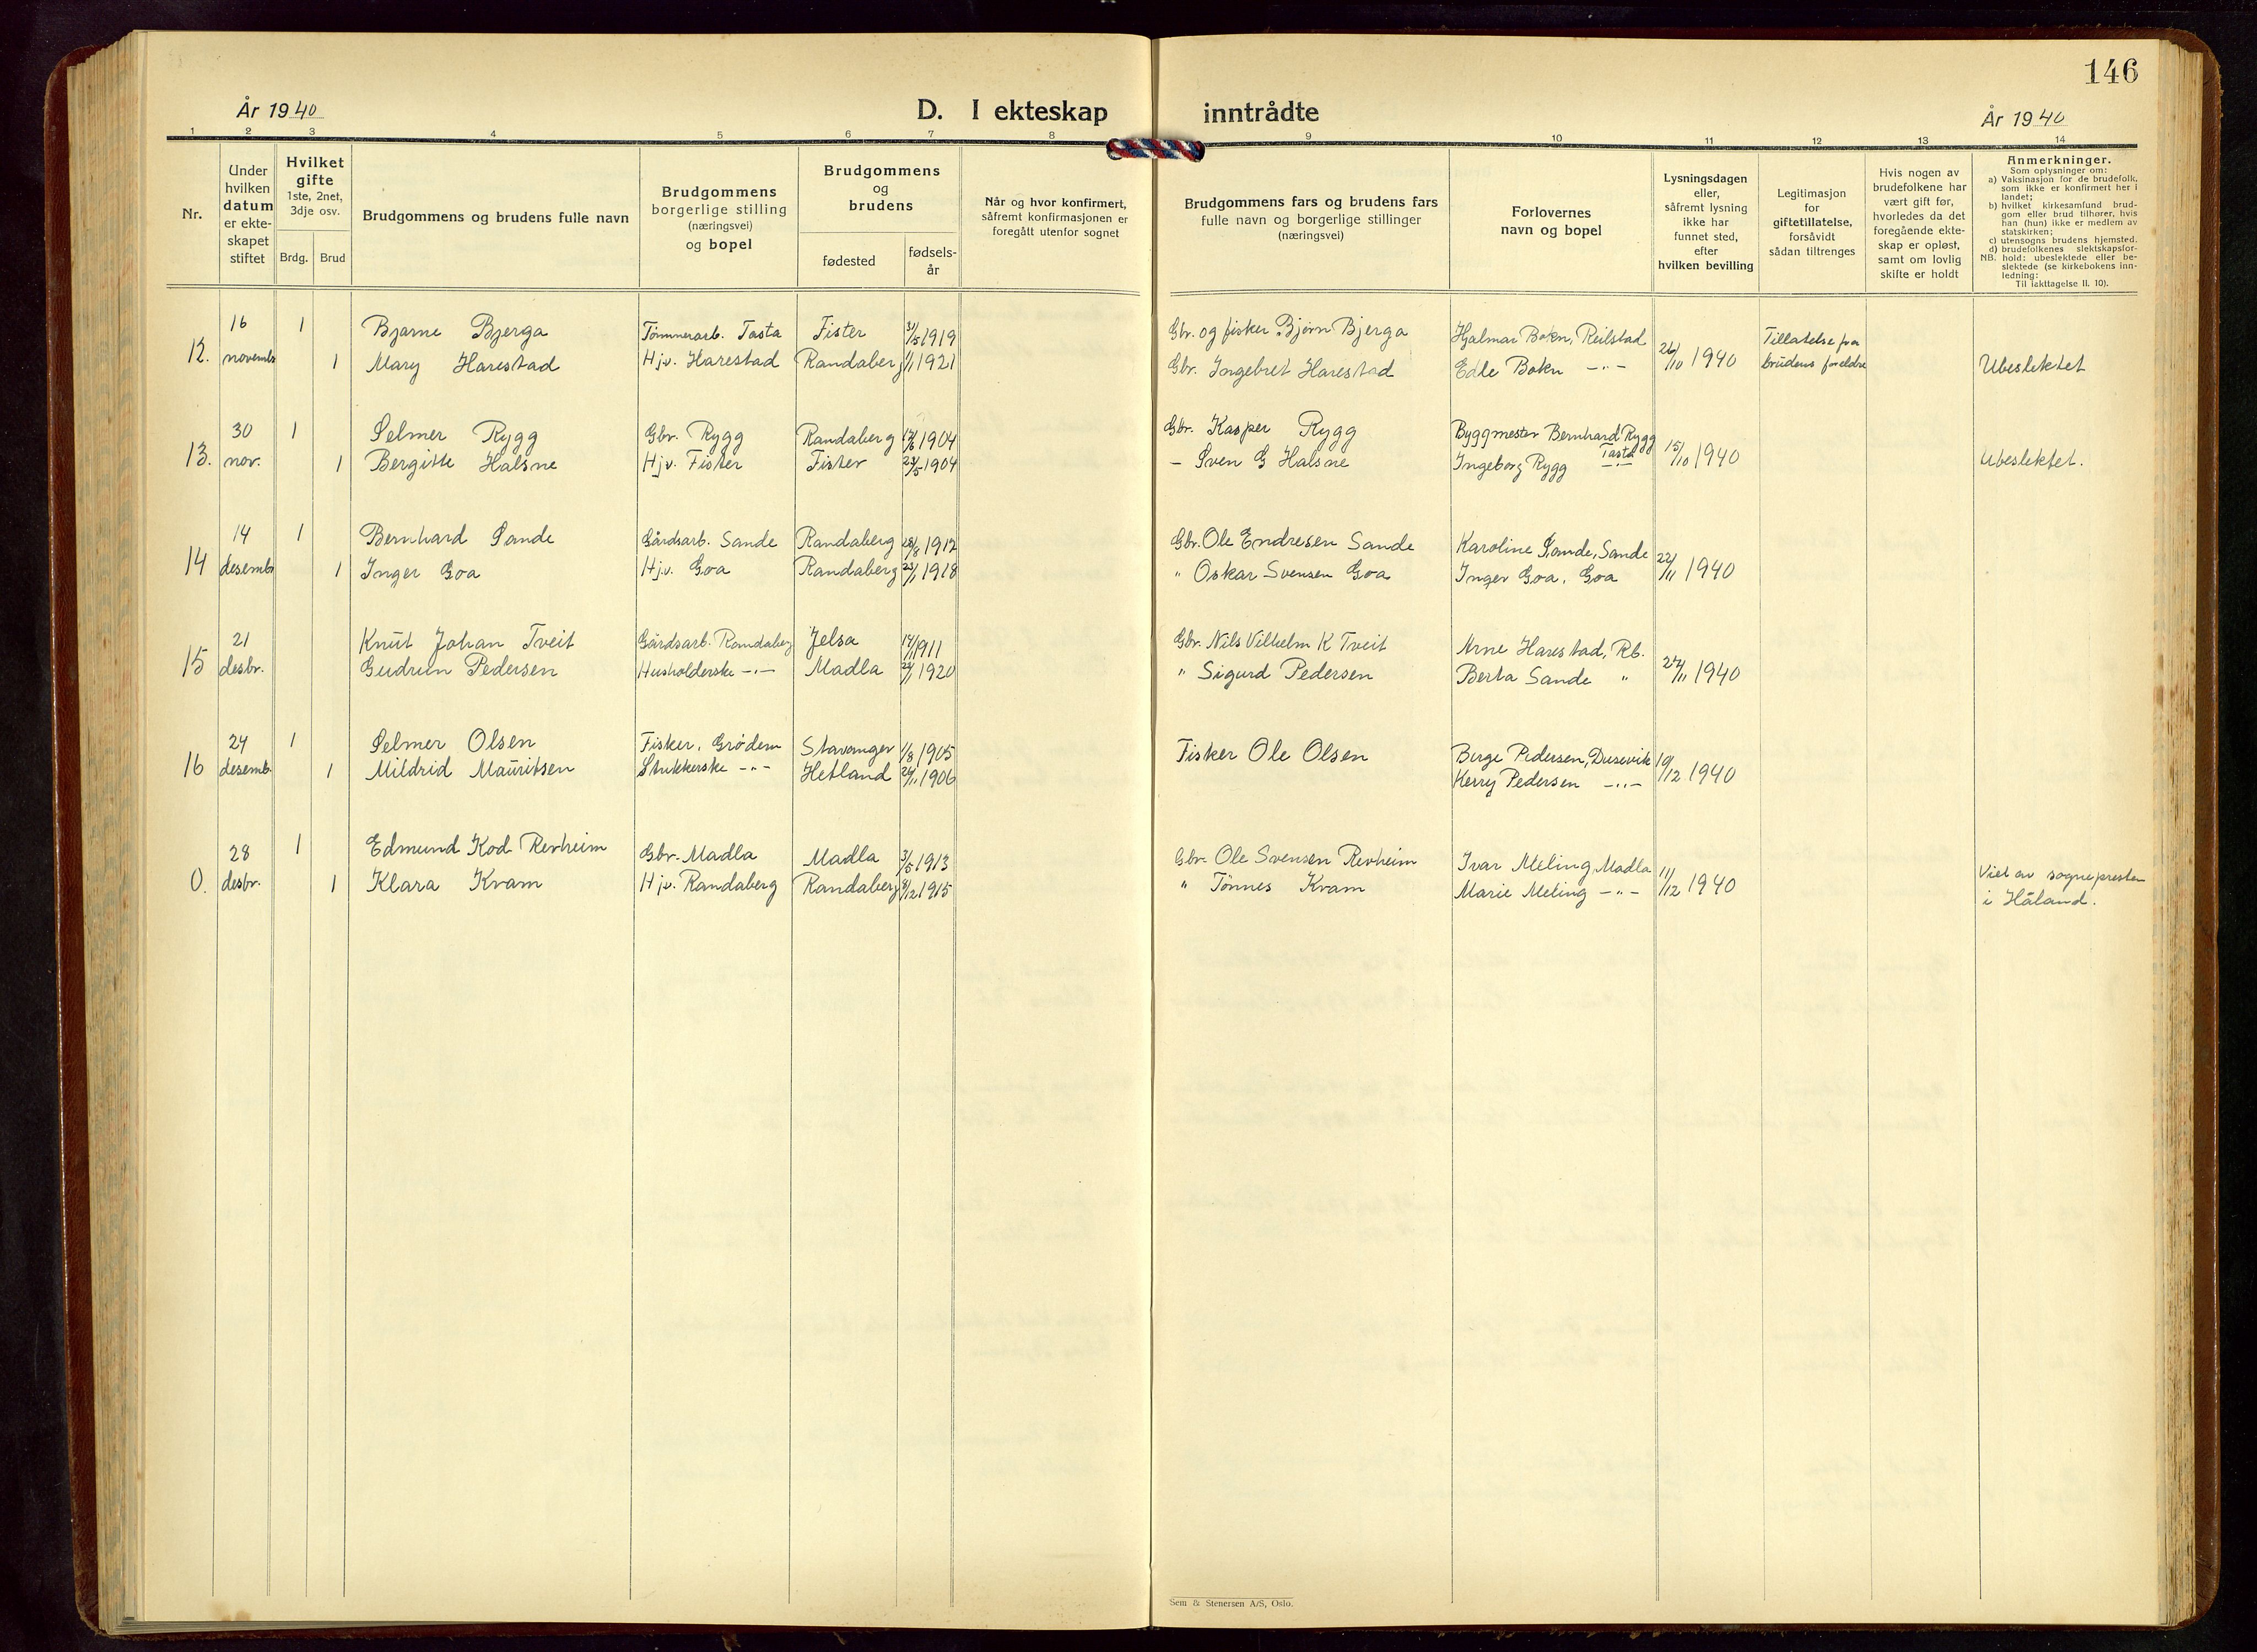 146
År 1940
D. I ekteskap inntrådte
År 1940
1 2 3 4 5 6 7 8 9 10 11 12 13 14
Nr.
Under hvilken datum er ekteskapet stiftet
Hvilket gifte 1ste, 2net, 3dje osv.
Brdg. Brud
Brudgommens og brudens fulle navn
Brudgommens borgerlige stilling (næringsvei) og bopel
Brudgommens og brudens
fødested
fødselsår
Når og hvor konfirmert, såfremt konfirmasjonen er foregått utenfor sognet
Brudgommens fars og brudens fars fulle navn og borgerlige stillinger (næringsvei)
Forlovernes navn og bopel
Lysningsdagen eller, såfremt lysning ikke har funnet sted, efter hvilken bevilling
Legitimasjon for giftetillatelse, forsåvidt sådan tiltrenges
Hvis nogen av brudefolkene har vært gift før, hvorledes da det foregående ekteskap er opløst, samt om lovlig skifte er holdt
Anmerkninger.
Som oplysninger om:
a) Vaksinasjon for de brudefolk, som ikke er konfirmert her i landet;
b) hvilket kirkesamfund brudgom eller brud tilhører, hvis han (hun) ikke er medlem av statskirken;
c) utensogns brudens hjemsted.
d) brudefolkenes slektskapsforhold: ubeslektede eller beslektede (se kirkebokens innledning:
NB.
Til iakttagelse II. 10).
12. 16 novemb 1 Bjarne Bjerga Tømmerarb. Tasta Fister 3/5 1919 Gbr. og fisker Bjørn Bjerga Hjalmar Bokn, Reilstad 26/10 1940 Tillatelse fra brudens foreldre
1 Mary Harestad Hj.v. Harestad Randaberg 1/1 1921 Gbr. Ingebret Harestad Edle Bokn -"- Ubeslektet
13. 30 nov. 1 Selmer Rygg Gbr. Rygg Randaberg 1904 Gbr. Kasper Rygg Byggmester Bernhard Rygg Tasta 15/10 1940
1 Bergitte Halsne Hj.v. Fister Fister 1904 - Sven G Halsne Ingeborg Rygg -"- Ubeslektet.
14 14 desemb 1 Bernhard Sande Gårdsarb. Sande Randaberg 1912 Gbr. Ole Endresen Sande Karoline Sande, Sande 22/11 1940
1 Inger Goa Hj.v. Goa Randaberg 1918 " Oskar Svensen Goa Inger Goa, Goa
15 21 desbr. Knut Johan Tveit Gårdsarb. Randaberg Jelsa 1911 Gbr. Nils Vilhelm K Tveit Arne Harestad, Rb. 1940
Gudrun Pedersen Husholderske -"- Madla 1920 " Sigurd Pedersen Berta Sande "
16 24 desemb. 1 Selmer Olsen Fisker, Grødem Stavanger 1/8 1905 Fisker Ole Olsen Børge Pedersen, Dusevik 19/12 1940
1 Mildrid Mauritsen Strikkerske -"- Hetland 1906 Pedersen -"-
0. 28 desbr. 1 Edmund Kod. Revheim Gbr. Madla Madla 3/5 1913 Gbr. Ole Svensen Revheim Ivar Meling, Madla 11/12 1940
1 Klara Kvam Hj.v. Randaberg Randaberg 1915 " Tønnes Kvam Marie Meling -"- Viet av sognepresten
i Håland.
Sem & Stenersen A/S, Oslo.